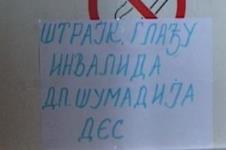 ШТРАЈК ГЛАЂУ
ИНВАЛИДА
ДП. ШУМАДИЈА
ДЕС